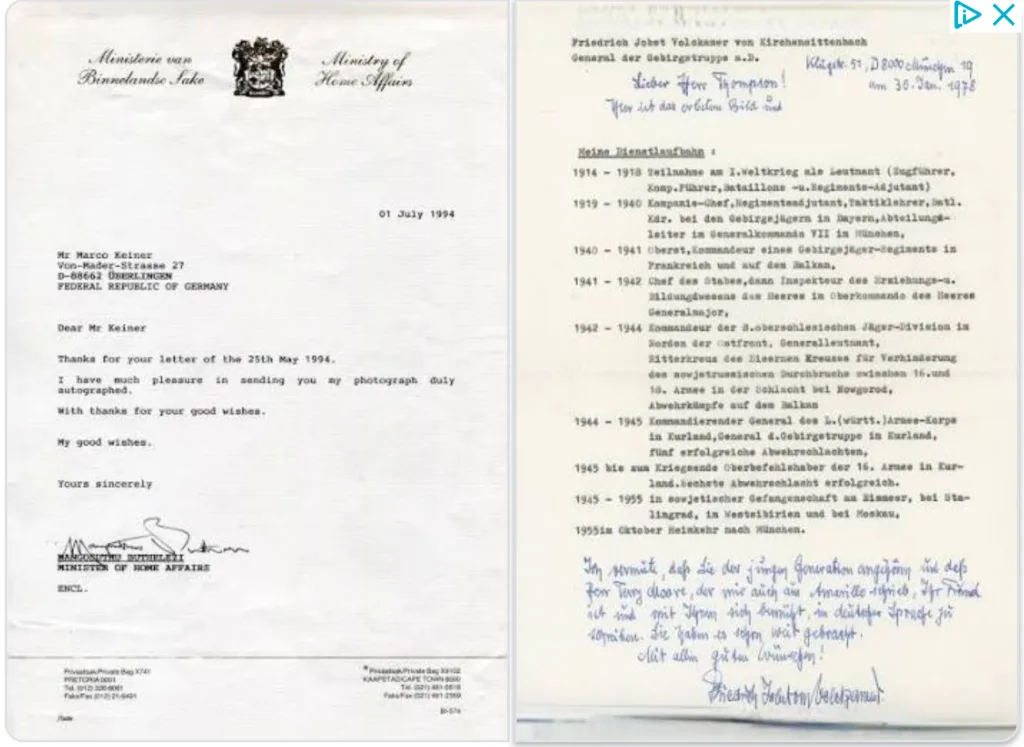 Ministerie van
Binnelandse Sake
Ministry of
Home Affairs
01 July 1994
Mr Marco Keiner
Von-Mader-Strasse 27
D-88662 ÜBERLINGEN
FEDERAL REPUBLIC OF GERMANY
Dear Mr Keiner
Thanks for your letter of the 25th May 1994.
I have much pleasure in sending you my photograph duly
autographed.
With thanks for your good wishes.
My good wishes.
Yours sincerely
MANGOSUTHU BUTHELEZI
MINISTER OF HOME AFFAIRS
ENCL.
Privaatsak/Private Bag X741
PRETORIA 0001
Tel. (012)
Faks/Fax (012)
Privaatsak/Private Bag
KAAPSTAD/CAPE TOWN 8000
Tel. (021)
Faks/Fax (021)
Friedrich Jobst Volckamer von Kirchensittenbach
General der Gebirgstruppe a.D.
D 8000 München 19
am 30. Jan. 1978
Lieber Herr Thompson!
Hier ist das erbetene Bild und
Meine Dienstlaufbahn :
1914 - 1918 Teilnahme am I.Weltkrieg als Leutnant (Zugführer,
Komp.Führer,Bataillons -u.Regiments-Adjutant)
1919 - 1940 Kompanie-Chef,Regimentsadjutant,Taktiklehrer,Batl.
Kdr. bei den Gebirgsjägern in Bayern,Abteilungs-
leiter im Generalkommando VII in München,
1940 - 1941 Oberst,Kommandeur eines Gebirgsjäger-Regiments in
Frankreich und auf dem Balkan,
1941 - 1942 Chef des Stabes,dann Inspekteur des Erziehungs-u.
Bildungswesens des Heeres im Oberkommando des Heeres
Generalmajor,
1942 - 1944 Kommandeur der 8.oberschlesischen Jäger-Division im
Norden der Ostfront, Generalleutnant,
Ritterkreuz des Eisernen Kreuzes für Verhinderung
des sowjetrussischen Durchbruchs zwischen 16.und
18. Armee in der Schlacht bei Nowgorod,
Abwehrkämpfe auf dem Balkan
1944 - 1945 Kommandierender General des L.(württ.)Armee-Korps
in Kurland,General d.Gebirgstruppe in Kurland,
fünf erfolgreiche Abwehrschlachten,
1945 bis zum Kriegsende Oberbefehlshaber der 16. Armee in Kur-
land.Sechste Abwehrschlacht erfolgreich.
1945 - 1955 in sowjetischer Gefangenschaft am Eismeer, bei Sta-
lingrad, in Westsibirien und bei Moskau,
1955im Oktober Heimkehr nach München.
Ich vermute, daß Sie der jungen Generation angehören und daß
Herr Terry Moore, der mir auch aus Amarillo schrieb, Ihr Freund
ist und mit Ihnen sich bemüht, in deutscher Sprache zu
schreiben. Sie haben es schon weit gebracht.
Mit allen guten Wünschen!